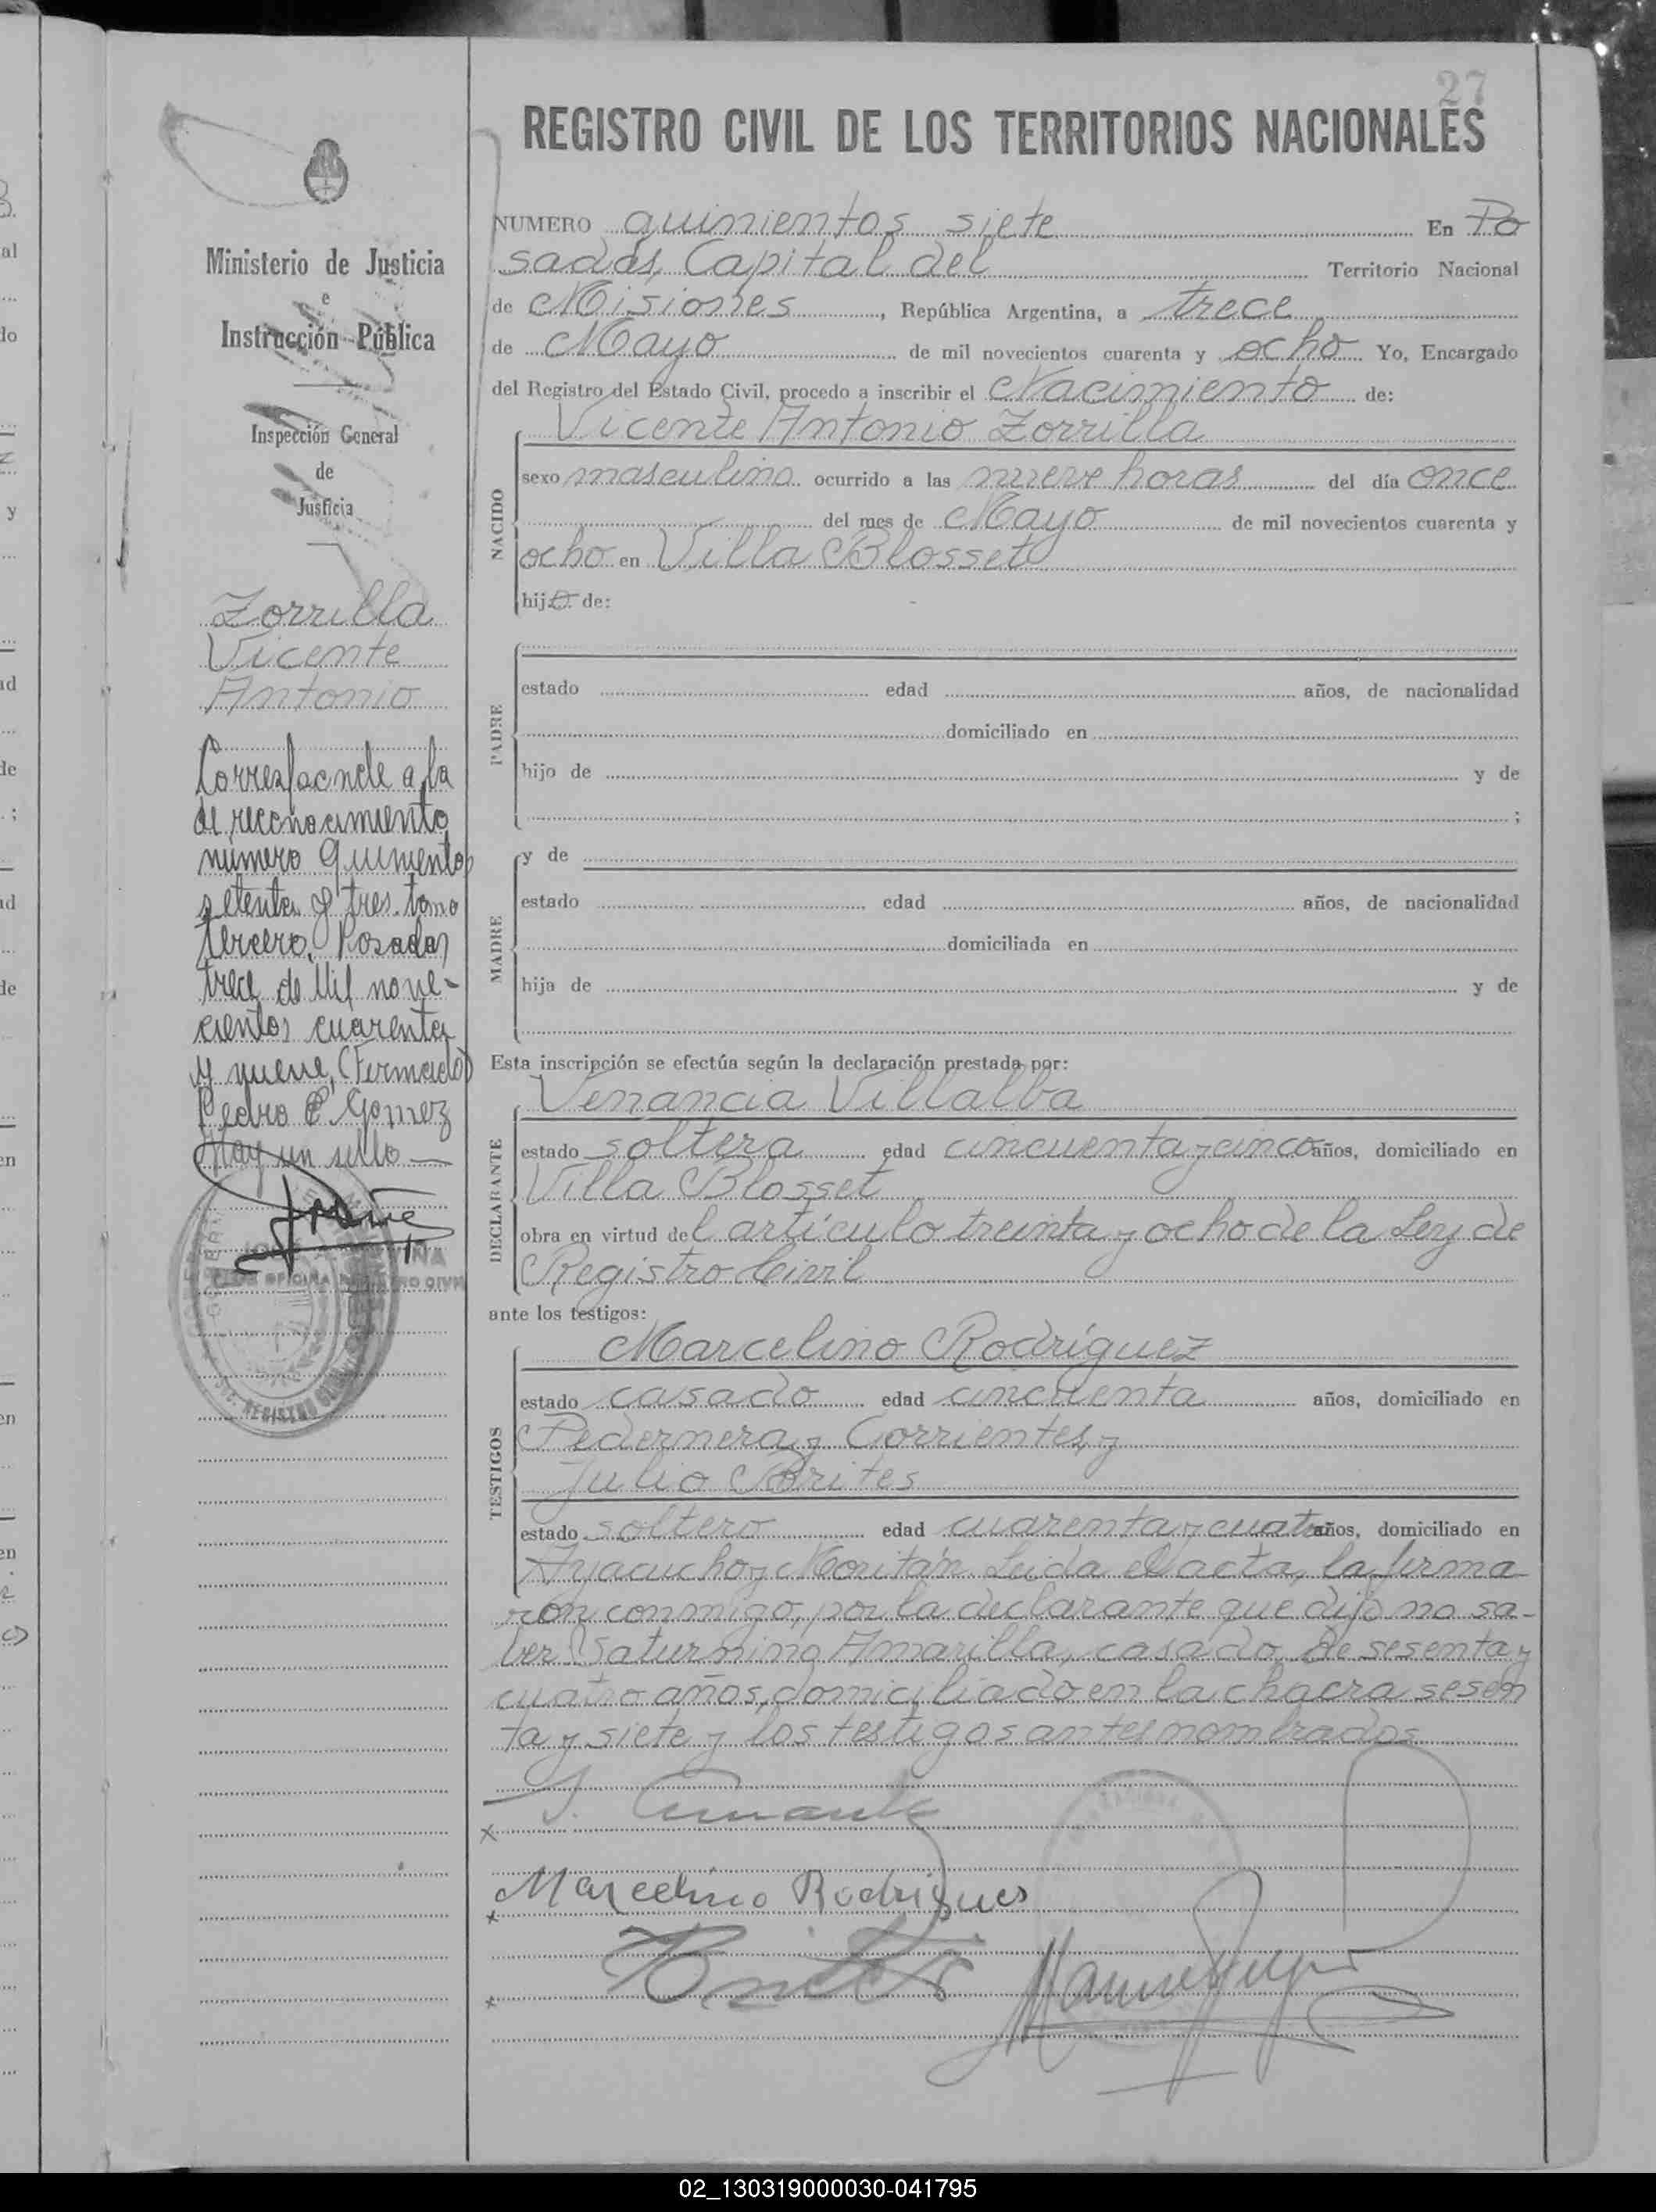 27
REGISTRO CIVIL DE LOS TERRITORIOS NACIONALES
Ministerio de Justicia
e
Instrucción Pública
Inspección General
de
Justicia
Zorrilla
Vicente
Antonio
Corresponde a la
de reconocimiento
número quinientos
setenta y tres tomo
tercero, Posadas
trece de Mil nove-
cientos cuarenta
y nueve, (Firmado)
Pedro E. Gomez
Hay un sello —
REGISTRO CIVIL
NUMERO quinientos siete En Po
sadas, Capital del Territorio Nacional
de Misiones, República Argentina, a trece
de Mayo de mil novecientos cuarenta y ocho Yo, Encargado
del Registro del Estado Civil, procedo a inscribir el Nacimiento de:
NACIDO
Vicente Antonio Zorrilla
sexo masculino ocurrido a las nueve horas del día once
del mes de Mayo de mil novecientos cuarenta y
ocho en Villa Blosset
hijo de:
PADRE
estado edad años, de nacionalidad
domiciliado en
hijo de y de
;
MADRE
y de
estado edad años, de nacionalidad
domiciliada en
hija de y de
Esta inscripción se efectúa según la declaración prestada por:
DECLARANTE
Venancia Villalba
estado soltera edad cincuenta y cinco años, domiciliado en
Villa Blosset
obra en virtud del artículo treinta y ocho de la Ley de
Registro Civil
ante los testigos:
TESTIGOS
Marcelino Rodríguez
estado casado edad cincuenta años, domiciliado en
Pedernera y Corrientes, y
Julio Brites
estado soltero edad cuarenta y cuatro años, domiciliado en
Ayacucho y Moritán. Leida el acta, la firma-
ron conmigo, por la declarante que dijo no sa-
ber Saturnino Amarilla, casado, de sesenta y
cuatro años, domiciliado en la chacra sesen
ta y siete y los testigos antes nombrados
Marcelino Rodrigues
Brites
02_130319000030-041795